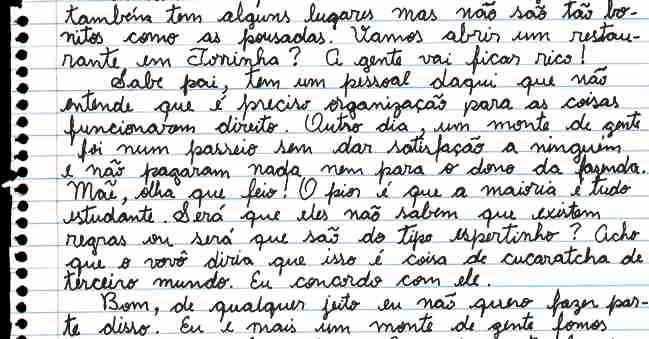 também tem alguns lugares mas não são tão bo-
nitos como as pousadas. Vamos abrir um restau-
rante em Joninha? A gente vai ficar rico!
Sabe pai, tem um pessoal daqui que não
entende que é preciso organização para as coisas
funcionarem direito. Outro dia, um monte de gente
foi num passeio sem dar satisfação a ninguém
e não pagaram nada nem para o dono da fazenda.
Mãe, olha que feio! O pior é que a maioria é tudo
estudante. Será que eles não sabem que existem
regras ou será que são do tipo espertinho? Acho
que o vovô diria que isso é coisa de cucaratcha de
terceiro mundo. Eu conardo com ele.
Bom, de qualquer jeito eu não quero fazer par-
te disso. Eu e mais um monte de gente fomos